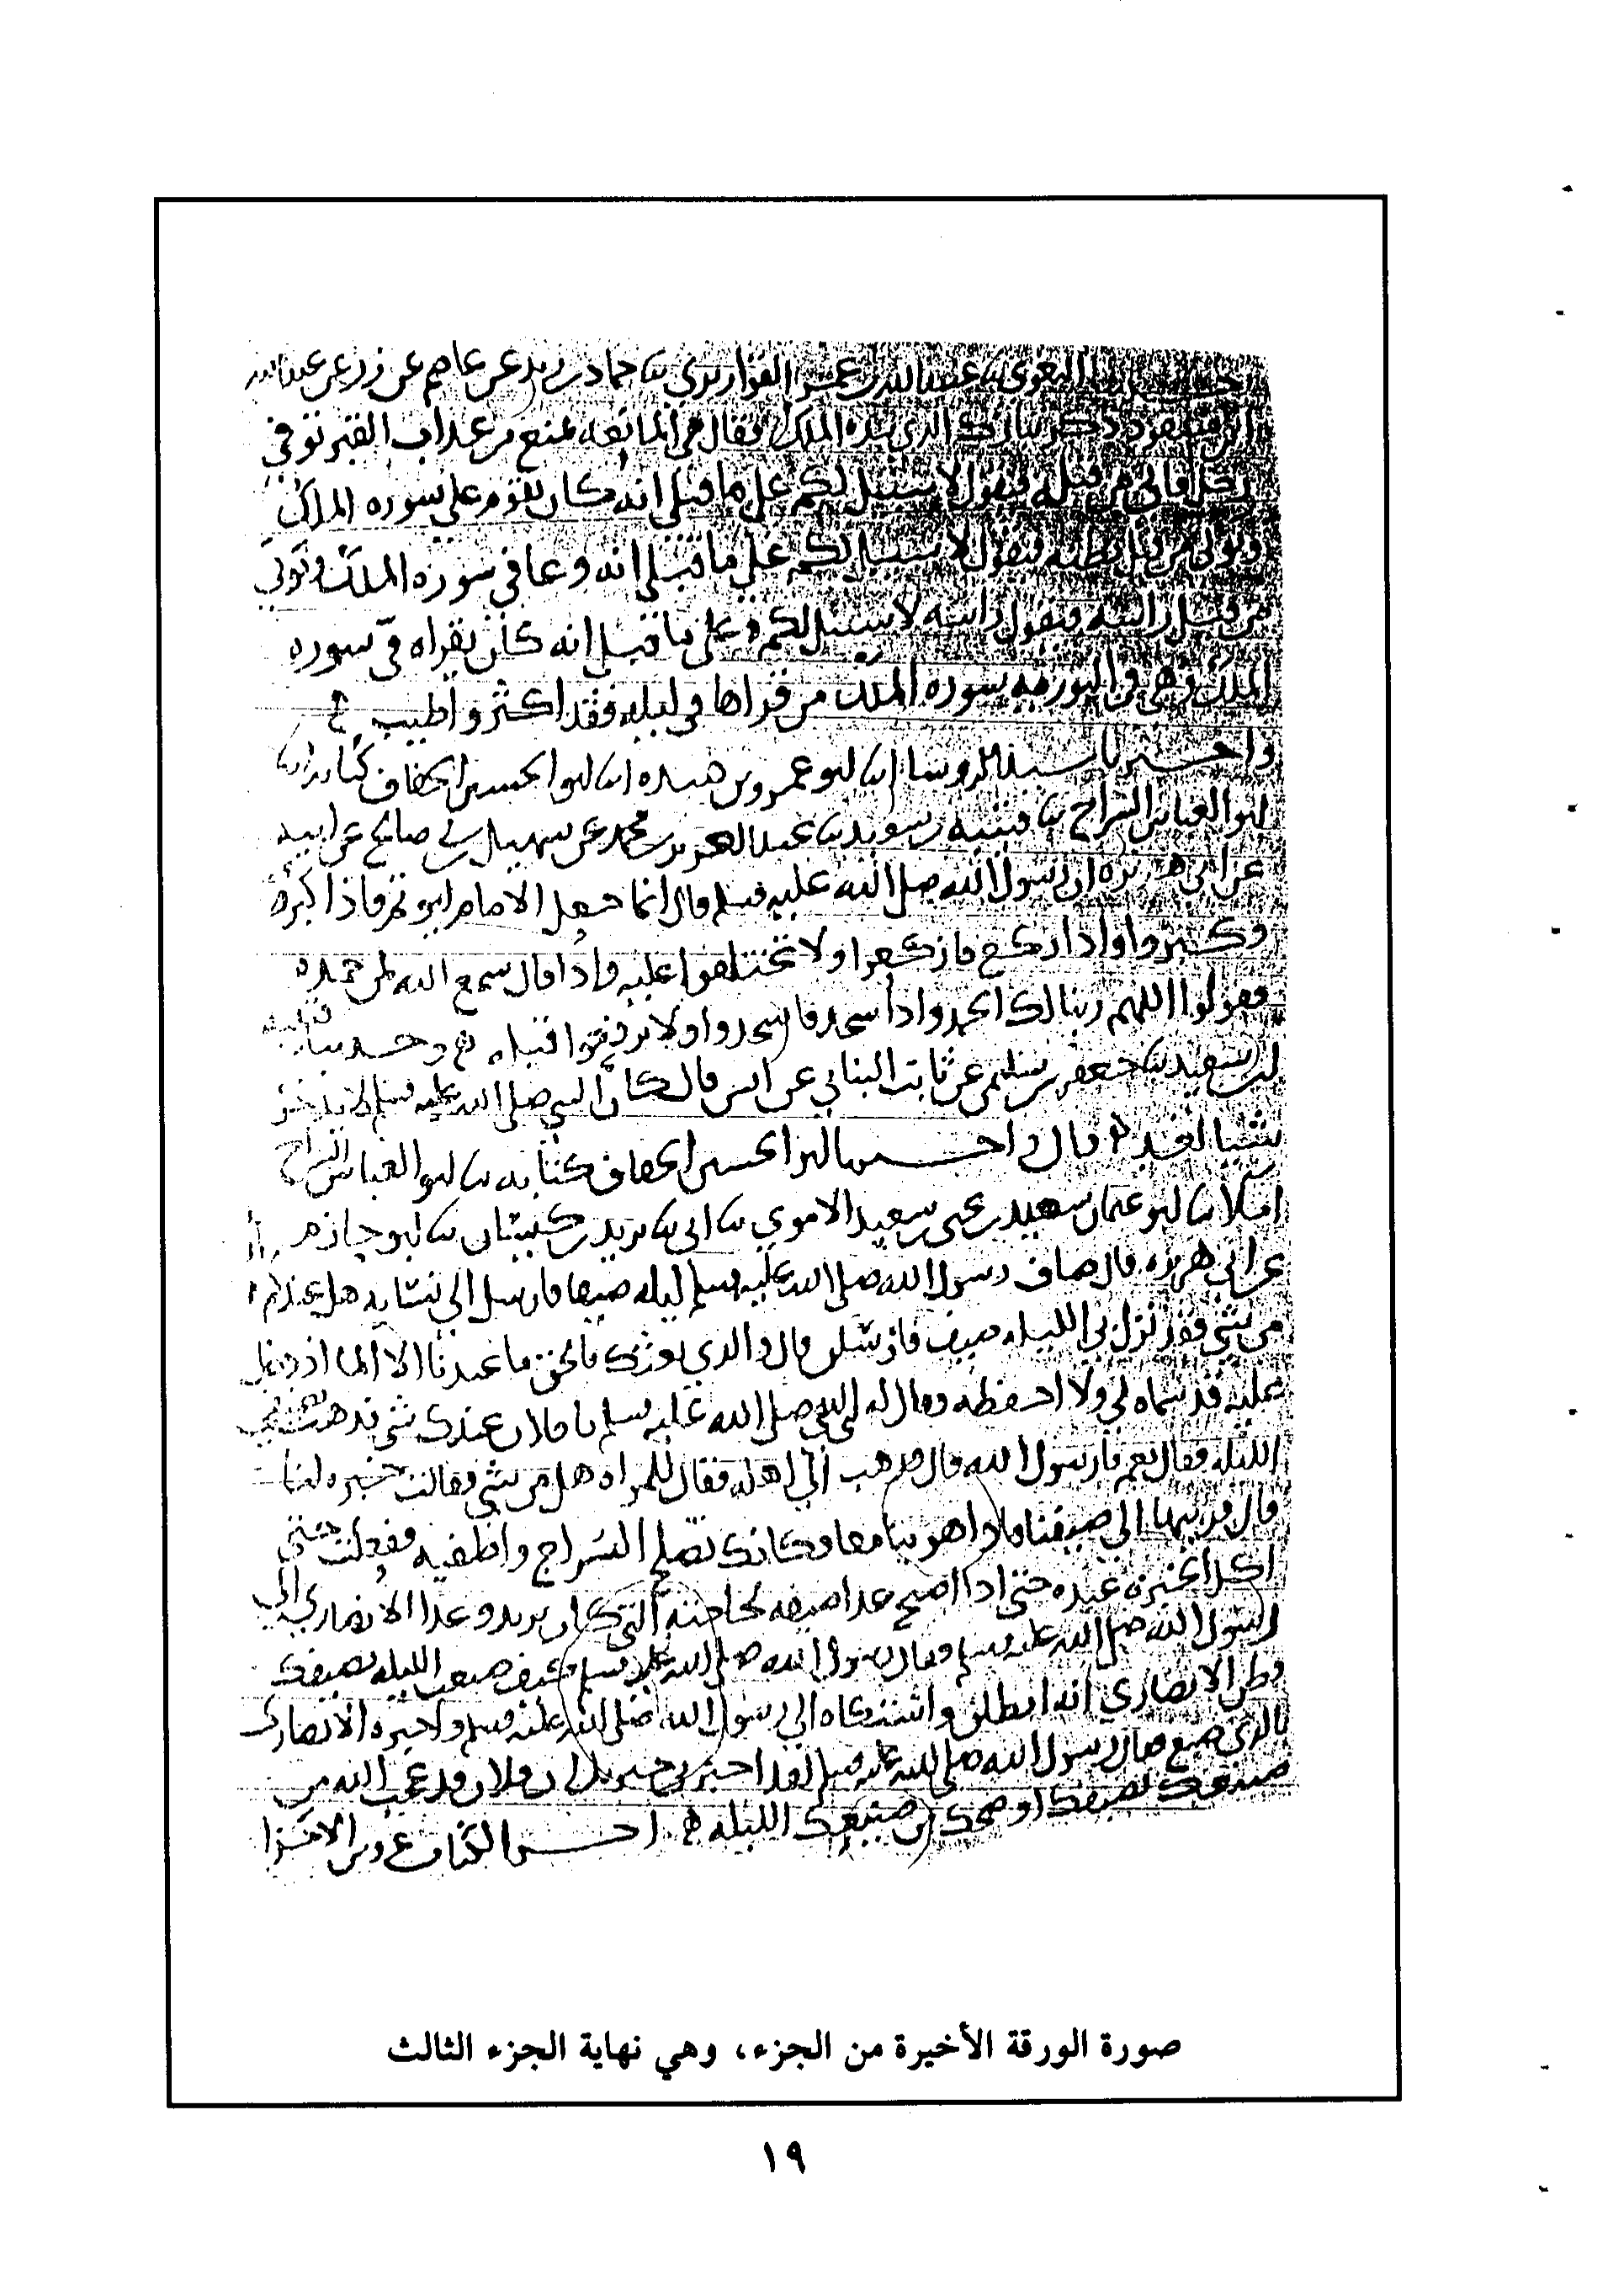 البغوي نا عبيد الله بن عمر القواريري نا حماد بن زيد عن عاصم عن زر عن عبد الله
ابن مسعود ذكر تبارك الذي بيده الملك فقال هي المانعه تمنع من عذاب القبر توفي
رجل فاتي من قبل فيقول لا سبيل لكم على ما قبلي انه كان يقوم علي بسوره الملك
ويوتى من قبل بطنه فيقول لا سبيل لكم على ما قبلي انه وعا في سوره الملك وتوتى
من قبل راسه فيقول راسه لا سبيل لكم على ما قبلي انه كان يقراه في سوره
الملك وهي في التوريه سوره الملك من قراها في ليله فقد اكثر واطيب
ابو عمرو بن ابو الحسين الخفاف
ابو العباس السراج نا قتيبه نا عبد العزيز بن محمد عن سهيل بن ابي صالح عن ابيه
عن ابي هريره ان رسول الله صلى الله عليه وسلم قال انما جعل الامام ليوتم فاذا كبر
وكبروا واذا ركع فاركعوا ولا تختلفوا عليه واذا قال سمع الله لمن حمده
فقولوا اللهم ربنا لك الحمد واذا سجد فاسجدوا ولا ترفعوا قبله وحدثنا قتيبه
بن سعيد نا جعفر بن سليمن عن ثابت البناني عن انس قال كان النبي صلى الله عليه وسلم لا يدخر
شيا لغد قال و ابو الحسين الخفاف نا ابو العباس السراج
املا نا ابو عثمان سعيد بن يحيى بن سعيد الاموي نا ابي نا يزيد بن كيسان نا ابو حازم
عن ابي هريره قال ضاف رسول الله صلى الله عليه وسلم ليله ضيفا فارسل الى نسايه هل عندكم
من شي فقد نزل بي الليله ضيف فارسلن قال والذي بعثك بالحق ما عندنا الا الما
عليه قد سماه لي ولا احفظه فقال له النبي صلى الله عليه وسلم يا فلان عندك شي
الليله فقال نعم يا رسول الله قال فذهب الى اهله فقال للمراه هل من شي فقالت خبزه لنا
قال قربيها الى ضيفنا السراج واطفيه ففعلت حتى
اكل الخبزه عنده حتى اذا اصبح غدا ضيفه لحاجته التي كان يريد وغدا الانصاري الى
رسول الله صلى الله عليه وسلم فقال رسول الله صلى الله عليه وسلم كيف صنعت الليله بضيفك
وظن الانصاري انه انطلق واشتكاه الى رسول الله صلى الله عليه وسلم الانصاري
بالذي صنع فقال رسول الله صلى الله عليه وسلم لقد اخبرني جبريل ان فلان قد عجب الله من
صنيعك لضيفك او ضحك من صنيعك الليله
صورة الورقة الأخيرة من الجزء، وهي نهاية الجزء الثالث
١٩